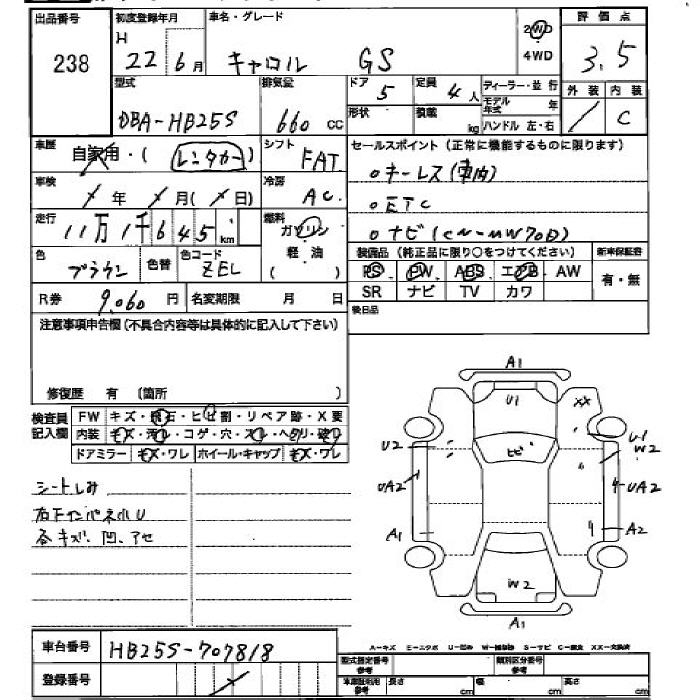 出品番号 初度登録年月 車名・グレード 評価点
238 H 22 6月 キャロル GS 2WD 4WD 3.5
型式 排気量 ドア 定員 ディーラー・並行 外装 内装
DBA-HB25S 660 cc 5 4人 モデル年式 年 C
形状 積載 kg ハンドル 左・右
車歴 自家用・( レンタカー ) シフト FAT セールスポイント (正常に機能するものに限ります)
車検 年 月( 日) 冷房 AC ○キーレス(車内)
○ETC
走行 11万1千645km 燃料 ガソリン 軽油 ( ) ○ナビ(CN-MW70D)
色 ブラウン 色替 色コード ZEL 装備品 (純正品に限り○をつけてください) 新車保証書
PS PW ABS エアB AW 有・無
R券 9,060円 名変期限 月 日 SR ナビ TV カワ
注意事項申告欄(不具合内容等は具体的に記入して下さい) 後日品
修復歴 有 (箇所 )
検査員記入欄 FW キズ・飛石・ヒビ割・リペア跡・X要
内装 キズ・汚れ・コゲ・穴・スレ・ヘタリ・破り
ドアミラー キズ・ワレ ホイール・キャップ キズ・ワレ
シートしみ
右下インパネ小U
各キズ、凹、アセ
A1
U1 XX
U2 ヒビ U1 W2
UA2 UA2
A1 A2
W2
A1
車台番号 HB25S-707818
A-キズ E-エクボ U-凹み W-補修跡 S-サビ C-腐食 XX-交換済
登録番号
型式指定番号 参考 類別区分番号 参考
車庫証明用 参考 長さ cm 幅 cm 高さ cm